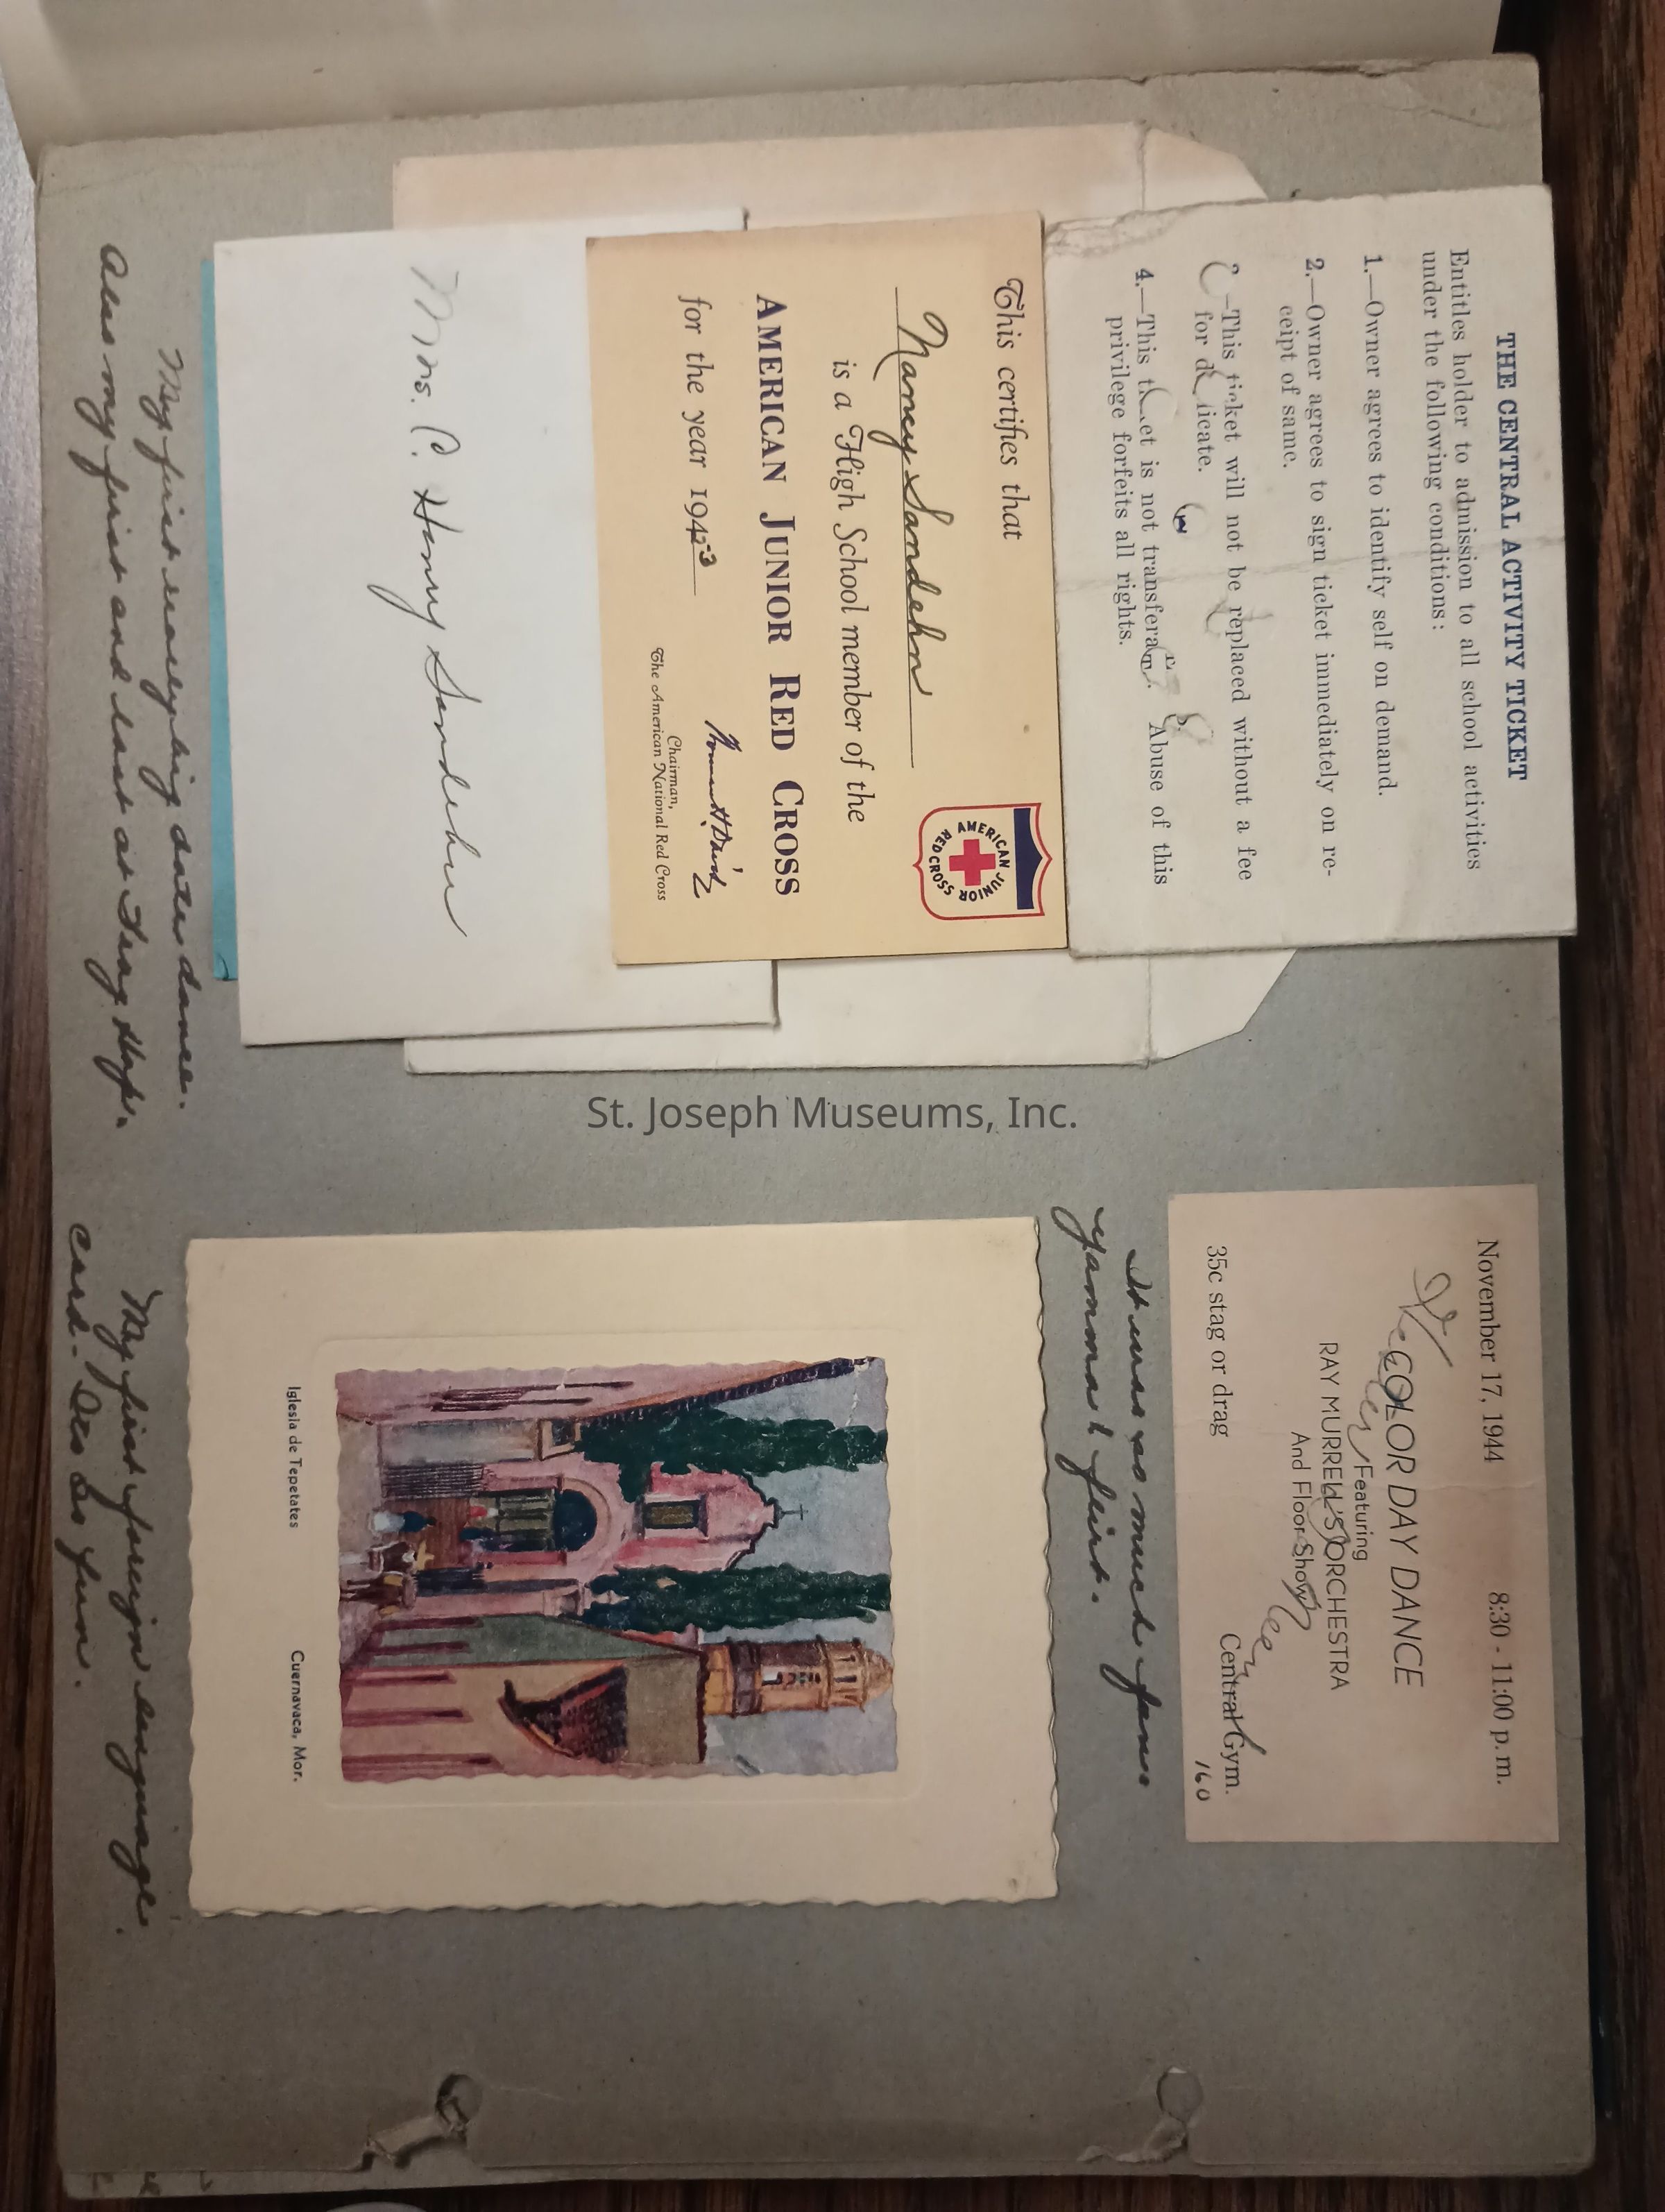 THE CENTRAL ACTIVITY TICKET
Entitles holder to admission to all school activities
under the following conditions:
1.—Owner agrees to identify self on demand.
2.—Owner agrees to sign ticket immediately on re-
ceipt of same.
—This ticket will not be replaced without a fee
for
4.—This is not Abuse of this
privilege forfeits all rights.
This certifies that
Nancy Sandehn
is a High School member of the
AMERICAN JUNIOR RED CROSS
for the year 194
Chairman,
The American National Red Cross
AMERICAN JUNIOR RED CROSS
Mrs. C. Henry Sandehn
My first dance.
Also my first and last at
November 17, 1944 8:30 - 11:00 p. m.
COLOR DAY DANCE
Featuring
RAY MURRELL'S ORCHESTRA
And Floor Show
35c stag or drag Central Gym.
160
It was so much fun
Iglesia de Tepetates Cuernavaca, Mor.
My first foreign language
card.
St. Joseph Museums, Inc.